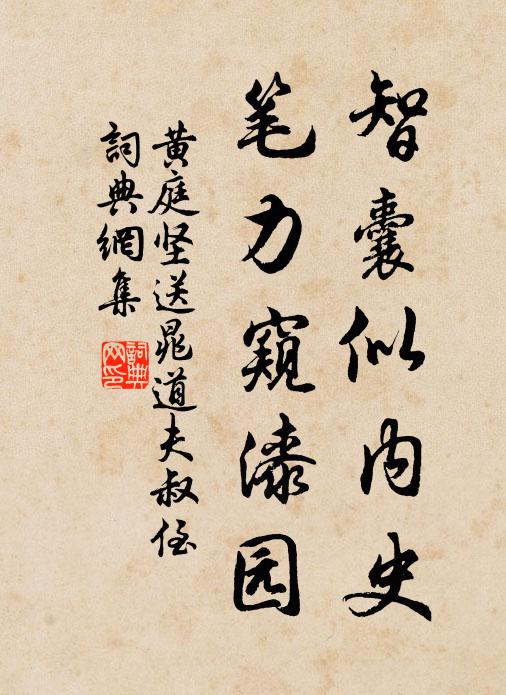 智囊似内史
笔力窥漆园
黄庭坚送晁道夫叔侄
詞典網集
詞典网印